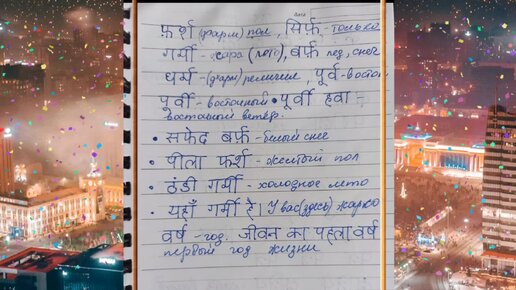 Date
फ़र्श (фарш) пол, सिर्फ़ только
गर्मी - жара (лето), बर्फ़ лёд, снег
धर्म - (дарм) религия, पूर्व - восток
पूर्वी - восточный • पूर्वी हवा -
восточный ветер.
• सफेद बर्फ़ - белый снег
• पीला फर्श - жёлтый пол
• ठंडी गर्मी - холодное лето
• यहाँ गर्मी है | У вас (здесь) жарко
वर्ष - год. जीवन का पहला वर्ष
первый год жизни